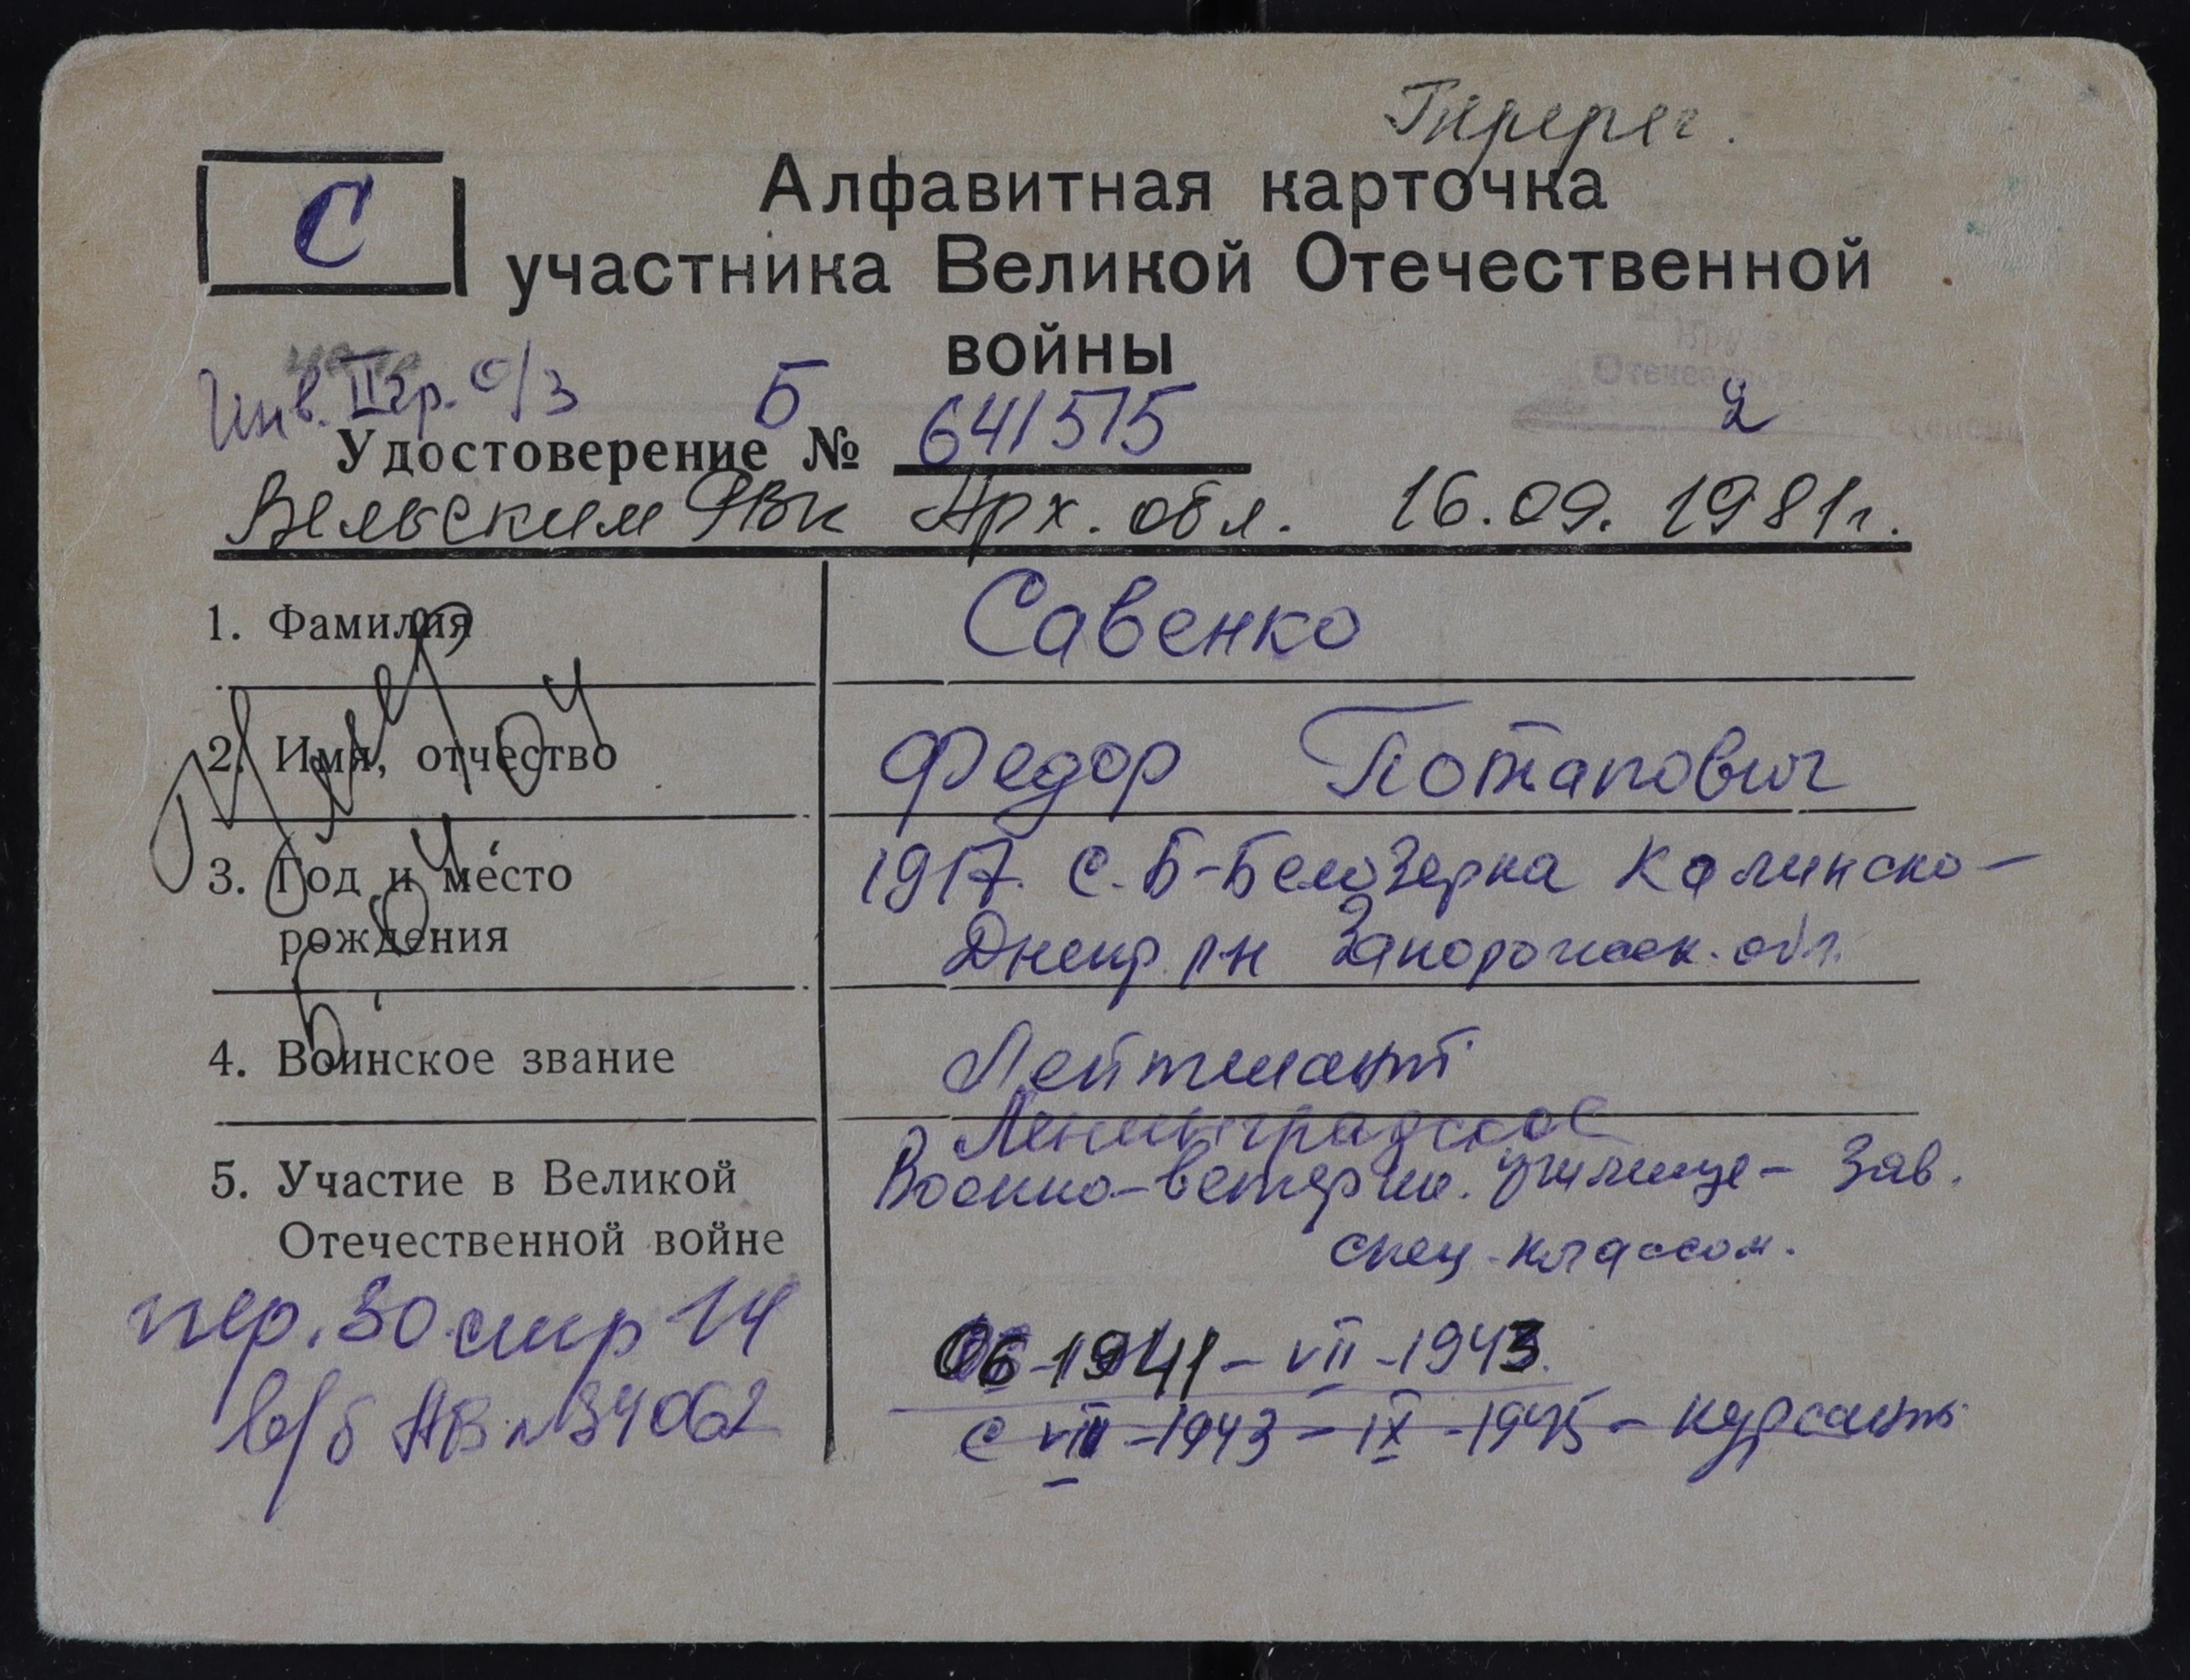 Перерег.
С
Алфавитная карточка
участника Великой Отечественной
войны
Инв. II гр. о/з
Удостоверение № Б 641515 2
Вельским РВК Арх. обл. 16.09.1981г.
1. Фамилия Савенко
2. Имя, отчество Федор Потапович
3. Год и место 1917. с. Б-Белозерка Калинско-
рождения Днепр. р-н Запорожск. обл.
4. Воинское звание Лейтенант
Ленинградское
5. Участие в Великой Военно-ветерин. училище - Зав.
Отечественной войне спец. классом.
пер. 30 стр 14 06-1941 - VII - 1943.
в/б АВ №34062 с VIII - 1943 - IX - 1945 - курсант
Выбыл